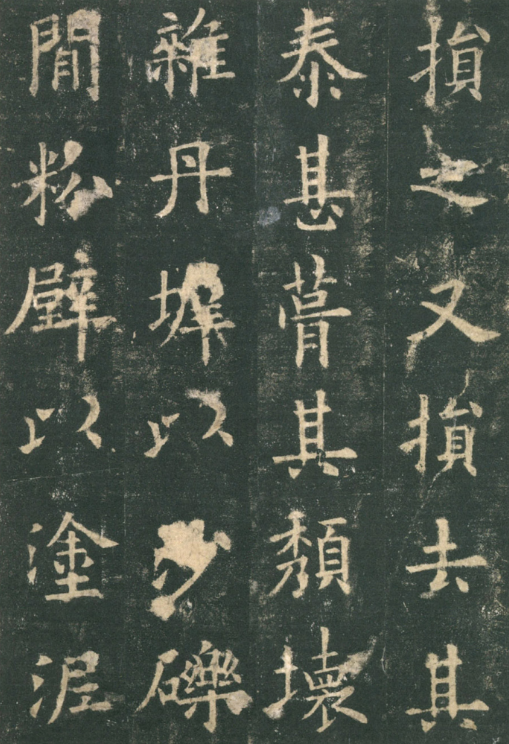 損之又損去其
泰甚葺其頹壞
雜丹墀以沙礫
間粉壁以塗泥